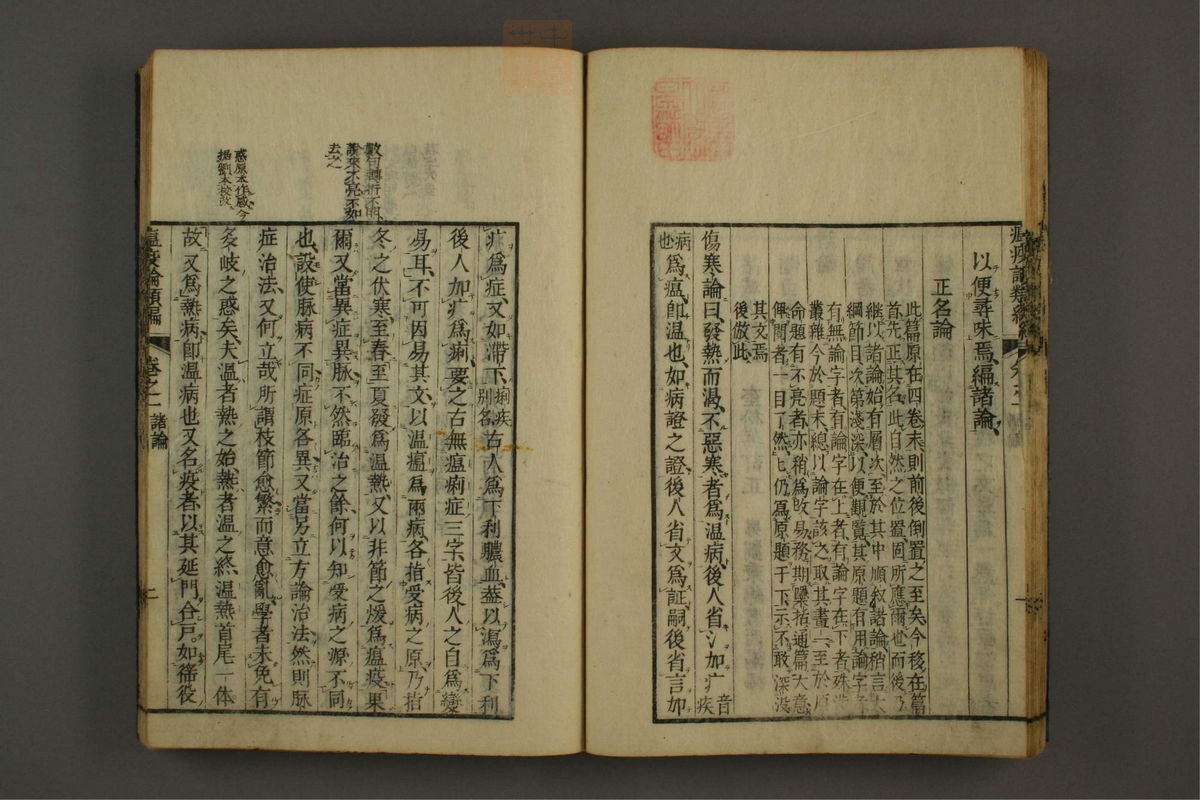 以便尋味焉編諸論
正名論
此篇原在四卷末則前後倒置之至矣今移在篇
首先正其名此自然之位置固所應爾也而後乃
継以諸論始有層次至於其中順叙諸論稍言大
綱節目次第淺深以便觀覽其原題有用論字
有無論字者有論字在上者有論字在下者殊
叢雜今於題末總以論字該之取其畫一至於原
命題有不亮者亦稍為改易務期槩括通篇大意
俾閱者一目了然仍為原題于下示不敢深没
其文焉
後倣此
傷寒論曰發熱而渇不惡寒者為温病後人省氵加疒音疾
病也為瘟即温也如病證之證後人省文為証嗣後省言如
疒為症又如滯下痢疾別名古人為下利膿血葢以瀉為下利
後人加疒為痢要之古無瘟痢症三字皆後人之自為變
易耳不可因易其文以温瘟為兩病各指受病之原乃指
冬之伏寒至春至夏發為温熱又以非節之煖為瘟疫果
爾又當異症異脉不然臨治之餘何以知受病之源不同
也設使脉病不同症原各異又當另立方論治法然則脉
症治法又何立哉所謂枝節愈繁而意愈亂學者未免有
多岐之惑矣夫温者熱之始熱者温之終温熱首尾一体
故又為熱病即温病也又名疫者以其延門合戸如徭役
數句轉折不明
説來不亮不如
去之
惑原本作感今
據劉本校改
瘟疫論類編
卷之一
諸論
二